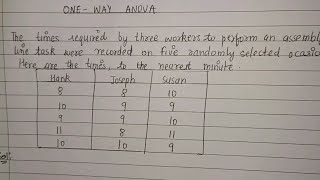 ONE-WAY ANOVA
The times required by three workers to perform an assembl
line task were recorded on five randomly selected ocasio
Here are the times, to the nearest minute.
Hank Joseph Susan
8 8 10
10 9 9
9 9 10
11 8 11
10 10 9